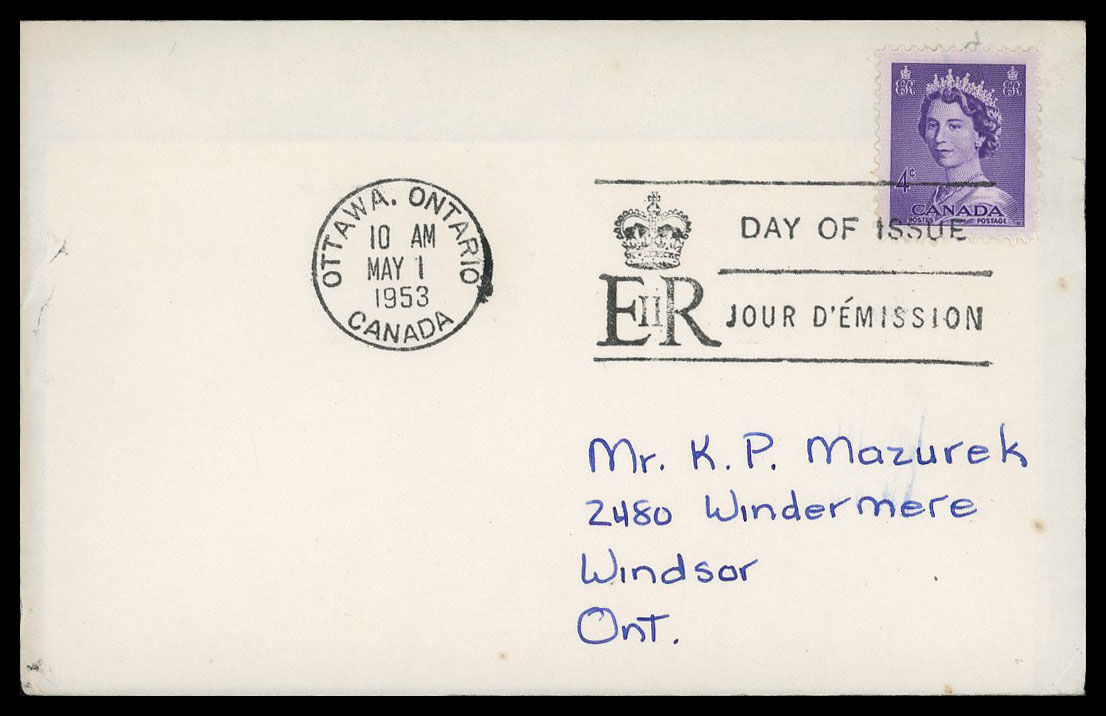 ER ER
4¢
CANADA
POSTES POSTAGE
OTTAWA. ONTARIO
10 AM
MAY 1
1953
CANADA
DAY OF ISSUE
EIIR
JOUR D'ÉMISSION
Mr. K. P. Mazurek
2480 Windermere
Windsor
Ont.